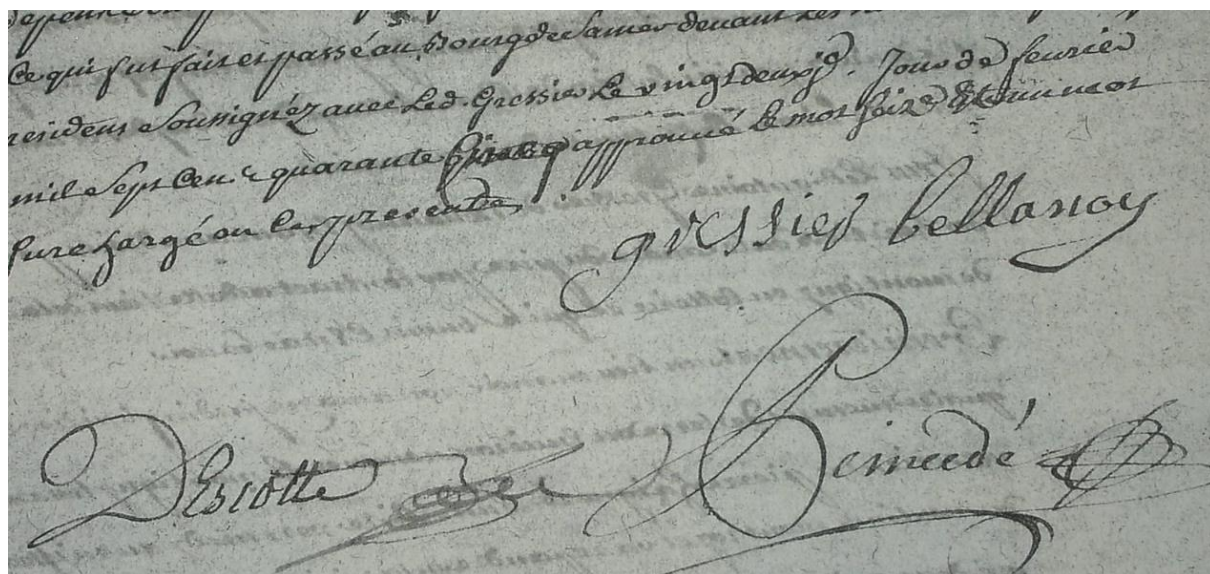 Ce qui fut fait et passé au Bourg de Samer devant les
residens soussignéz avec led. Gressier le vingt deuxje. Jour de fevrier
mil sept cen.t quarante approuvé le mot faire et un mot
surchargé au les presentes
gressier bellanoy
DEscotte Pemeedé